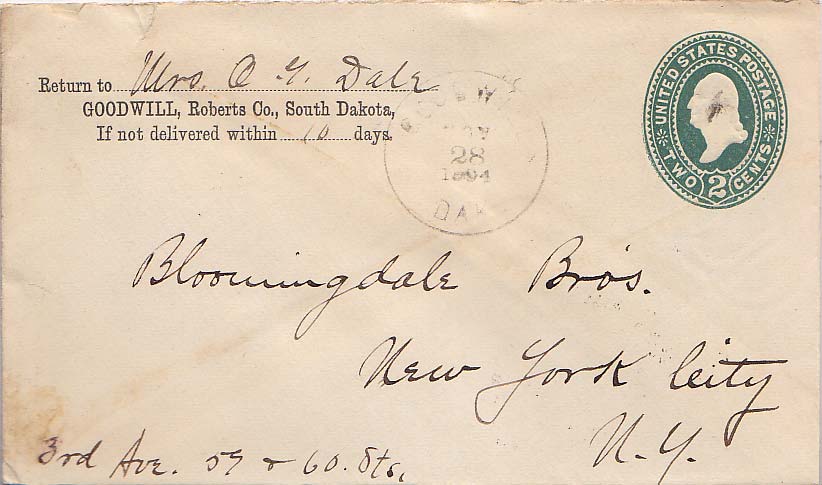 Return to Mrs. C. G. Dale
GOODWILL, Roberts Co., South Dakota,
If not delivered within 10 days.
28
1894
DAK
UNITED STATES POSTAGE
TWO 2 CENTS
Bloomingdale Bro's.
New York City
N.Y.
3rd Ave. 59 & 60. Sts.